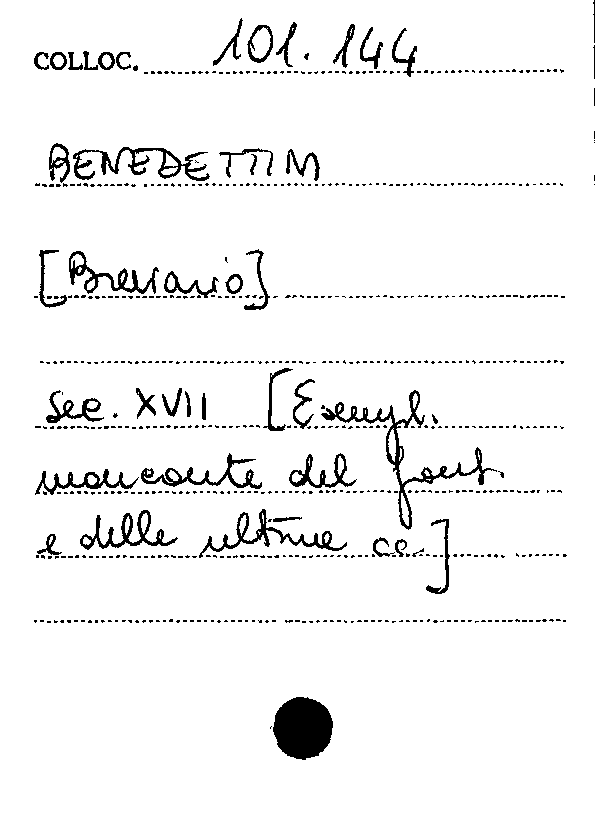 COLLOC. 101.144
BENEDETTINI
[Breviario]
Sec. XVII [Esempl.
mancante del front.
e delle ultime cc.]